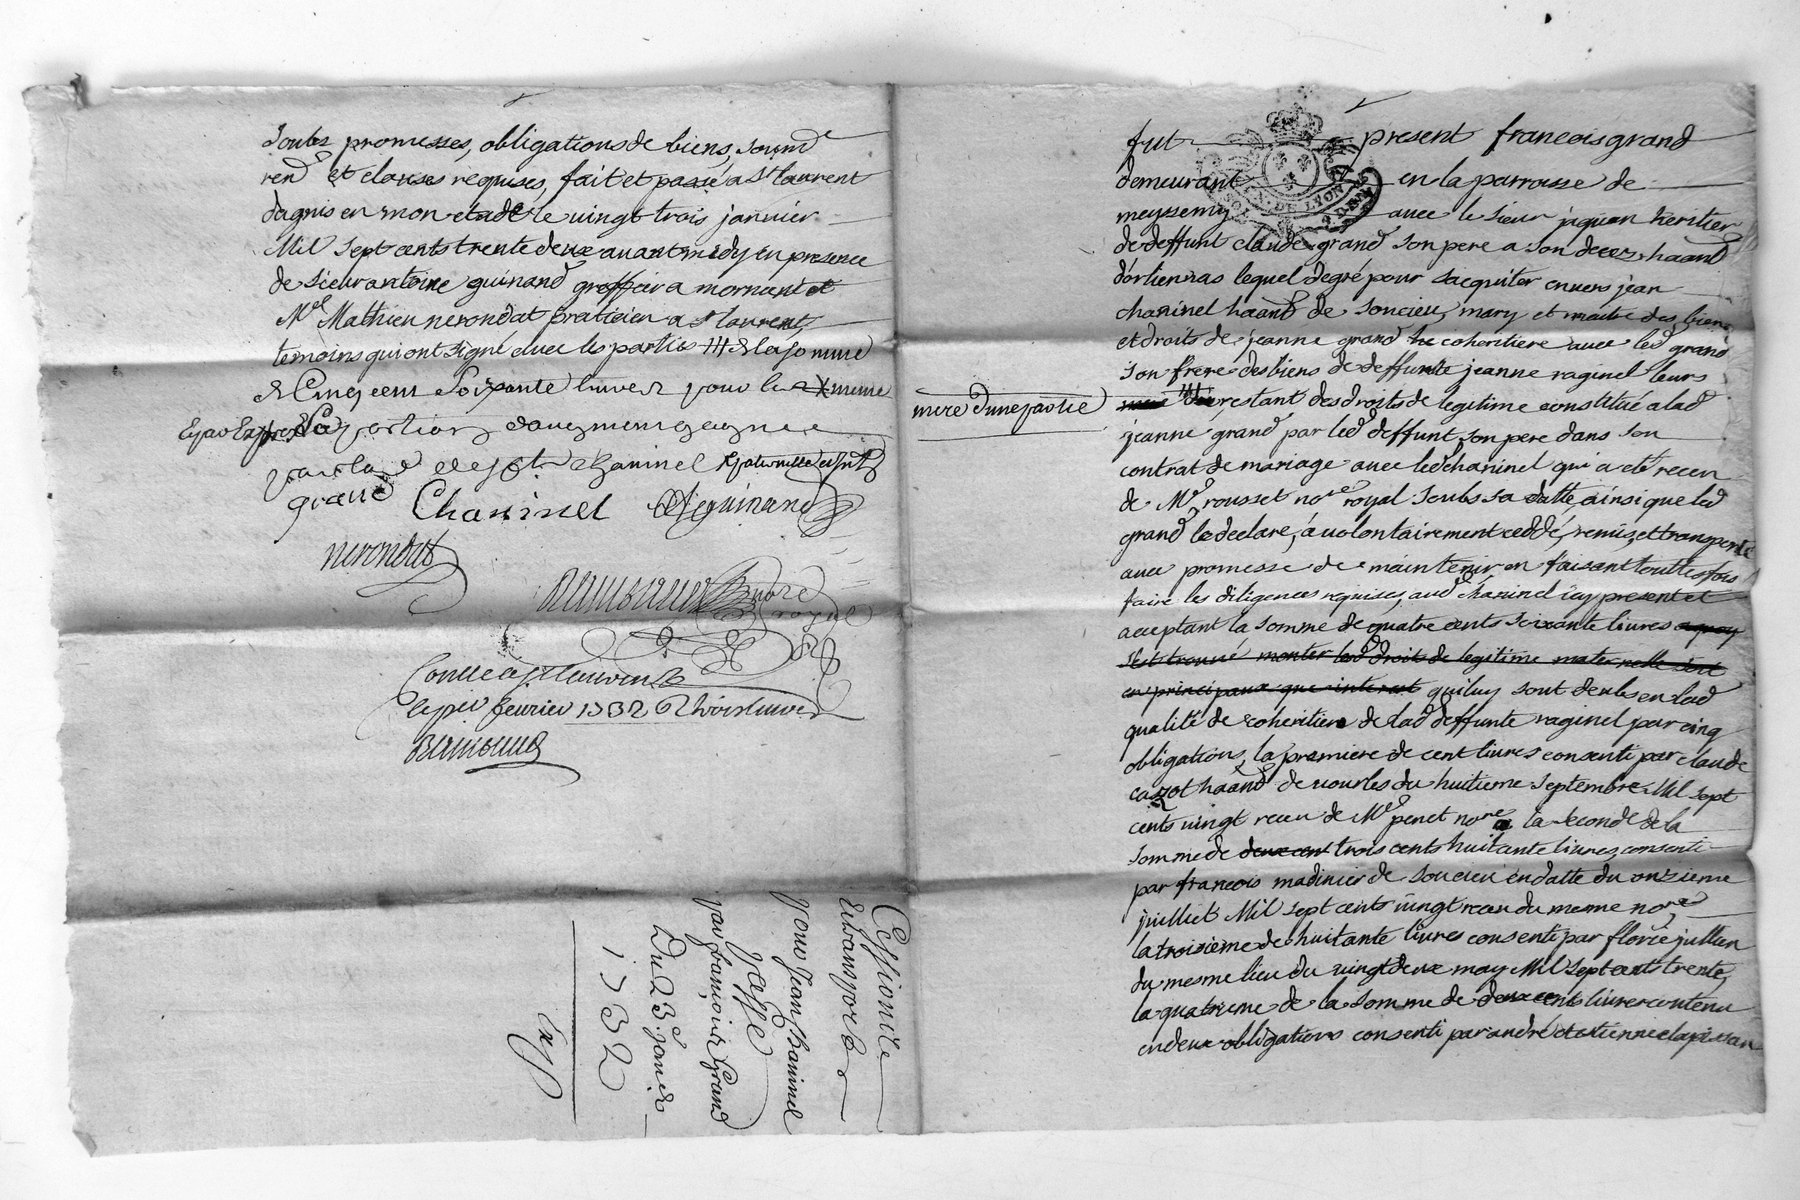 soubz promesses, obligations de biens, soumd
rend et clauses requises, fait et passé a St laurent
dagnis en mon etude le vingt trois janvier
Mil sept cents trente deux avant midy en presence
de sieur antoine guinand greffier a mornant et
Mre Mathieu nerondat praticien a St laurent
temoins qui ont signé avec les parties de la somme
de Cinq cent soixante livres pour la mesme
grand
Chaninel
guinand
nerondat
royal
Conlle a St laurent
le per feurier 1732 R trois livres
Cession et
transport
pour Jean Chaninel
passé
par francois Grand
Du 23e janer
1732
fut present francois grand
demeurant en la parroisse de
meyssemy avec le sieur jaquan heritier
de deffunt claude grand son pere a son deces haand
dortiennas lequel degré pour sacquiter envers jean
chaninel haand de soucieu, mary et maitre des biens
et droits de jeanne grand coheritiere avec led grand
son frere des biens de deffunte jeanne raginel leurs
mere d'une partie
restant des droits de legitime constitué a lad
jeanne grand par led deffunt son pere dans son
contrat de mariage avec led chaninel qui a eté receu
de Me rousset nore royal soubs sa datte, ainsi que led
grand le declare, a volontairement ceddé, remis, et transporté
avec promesse de maintenir en faisant touttes fois
faire les diligences requises, aud chaninel icy present et
acceptant la somme de quatre cents soixante livres a quoy
s'est trouvé monter led droit de legitime maternelle tant
en principaux que interest qui luy sont deubs en lad
qualité de coheritier de lad deffunte raginel par cinq
obligations, la premiere de cent livres consenti par claude
cazot haand de vourles du huitieme septembre Mil sept
cents vingt receu de Me penet nore la seconde de la
somme de deux cent trois cents huitante livres consenti
par francois madinier de soucieu en datte du onzieme
juilliet Mil sept cents vingt receu du mesme nore
la troisieme de huitante livres consenti par florie jullien
du mesme lieu du vingt deux may Mil sept cents trente,
la quatrieme de la somme de deux cent livres contenu
en deux obligations consenti par andré et etienne